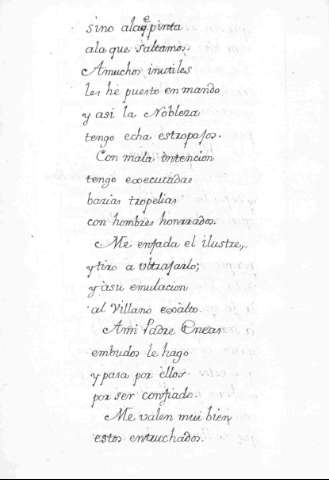 sino alaq̃ pinta
ala que saltamos.
Amuchos inutiles
les hé puesto en mando
y asi la Nobleza
tengo echa estropajos.
Con mala intencion
tengo executadas
barias tropelias
con hombres honrrados.
Me enfada el ilustre,
y tiro a vltrajarlo;
y àsu emulacion
al Villano exàlto.
Ami Padre Eneas
embudos le hago
y pasa por ellos
por ser confiado.
Me valen mui bien
estos entruchados.